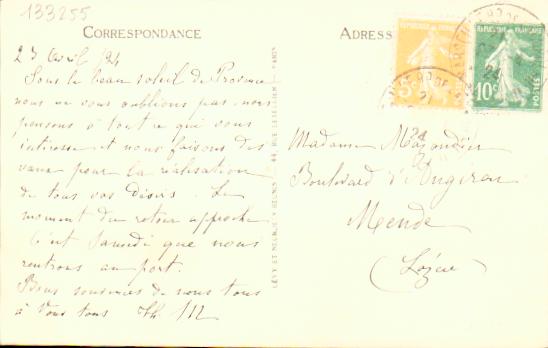 133255
CORRESPONDANCE
23 Avril /24
Sous le beau soleil de Provence
nous ne vous oublions pas, nous
pensons à tout ce qui vous
intéresse et nous faisons des
vœux pour la réalisation
de tous vos désirs. Le
moment du retour approche
C'est Samedi que nous
rentrons au port.
Bons souvenirs de nous tous
à vous tous
LÉVY ET NEURDEIN RÉUNIS, 44, RUE LETELLIER, PARIS
ADRESSE
REPUBLIQUE FRANÇAISE
5c
REPUBLIQUE FRANÇAISE
10c
POSTES
Madame
Boulevard d'
Mende
(Lozère